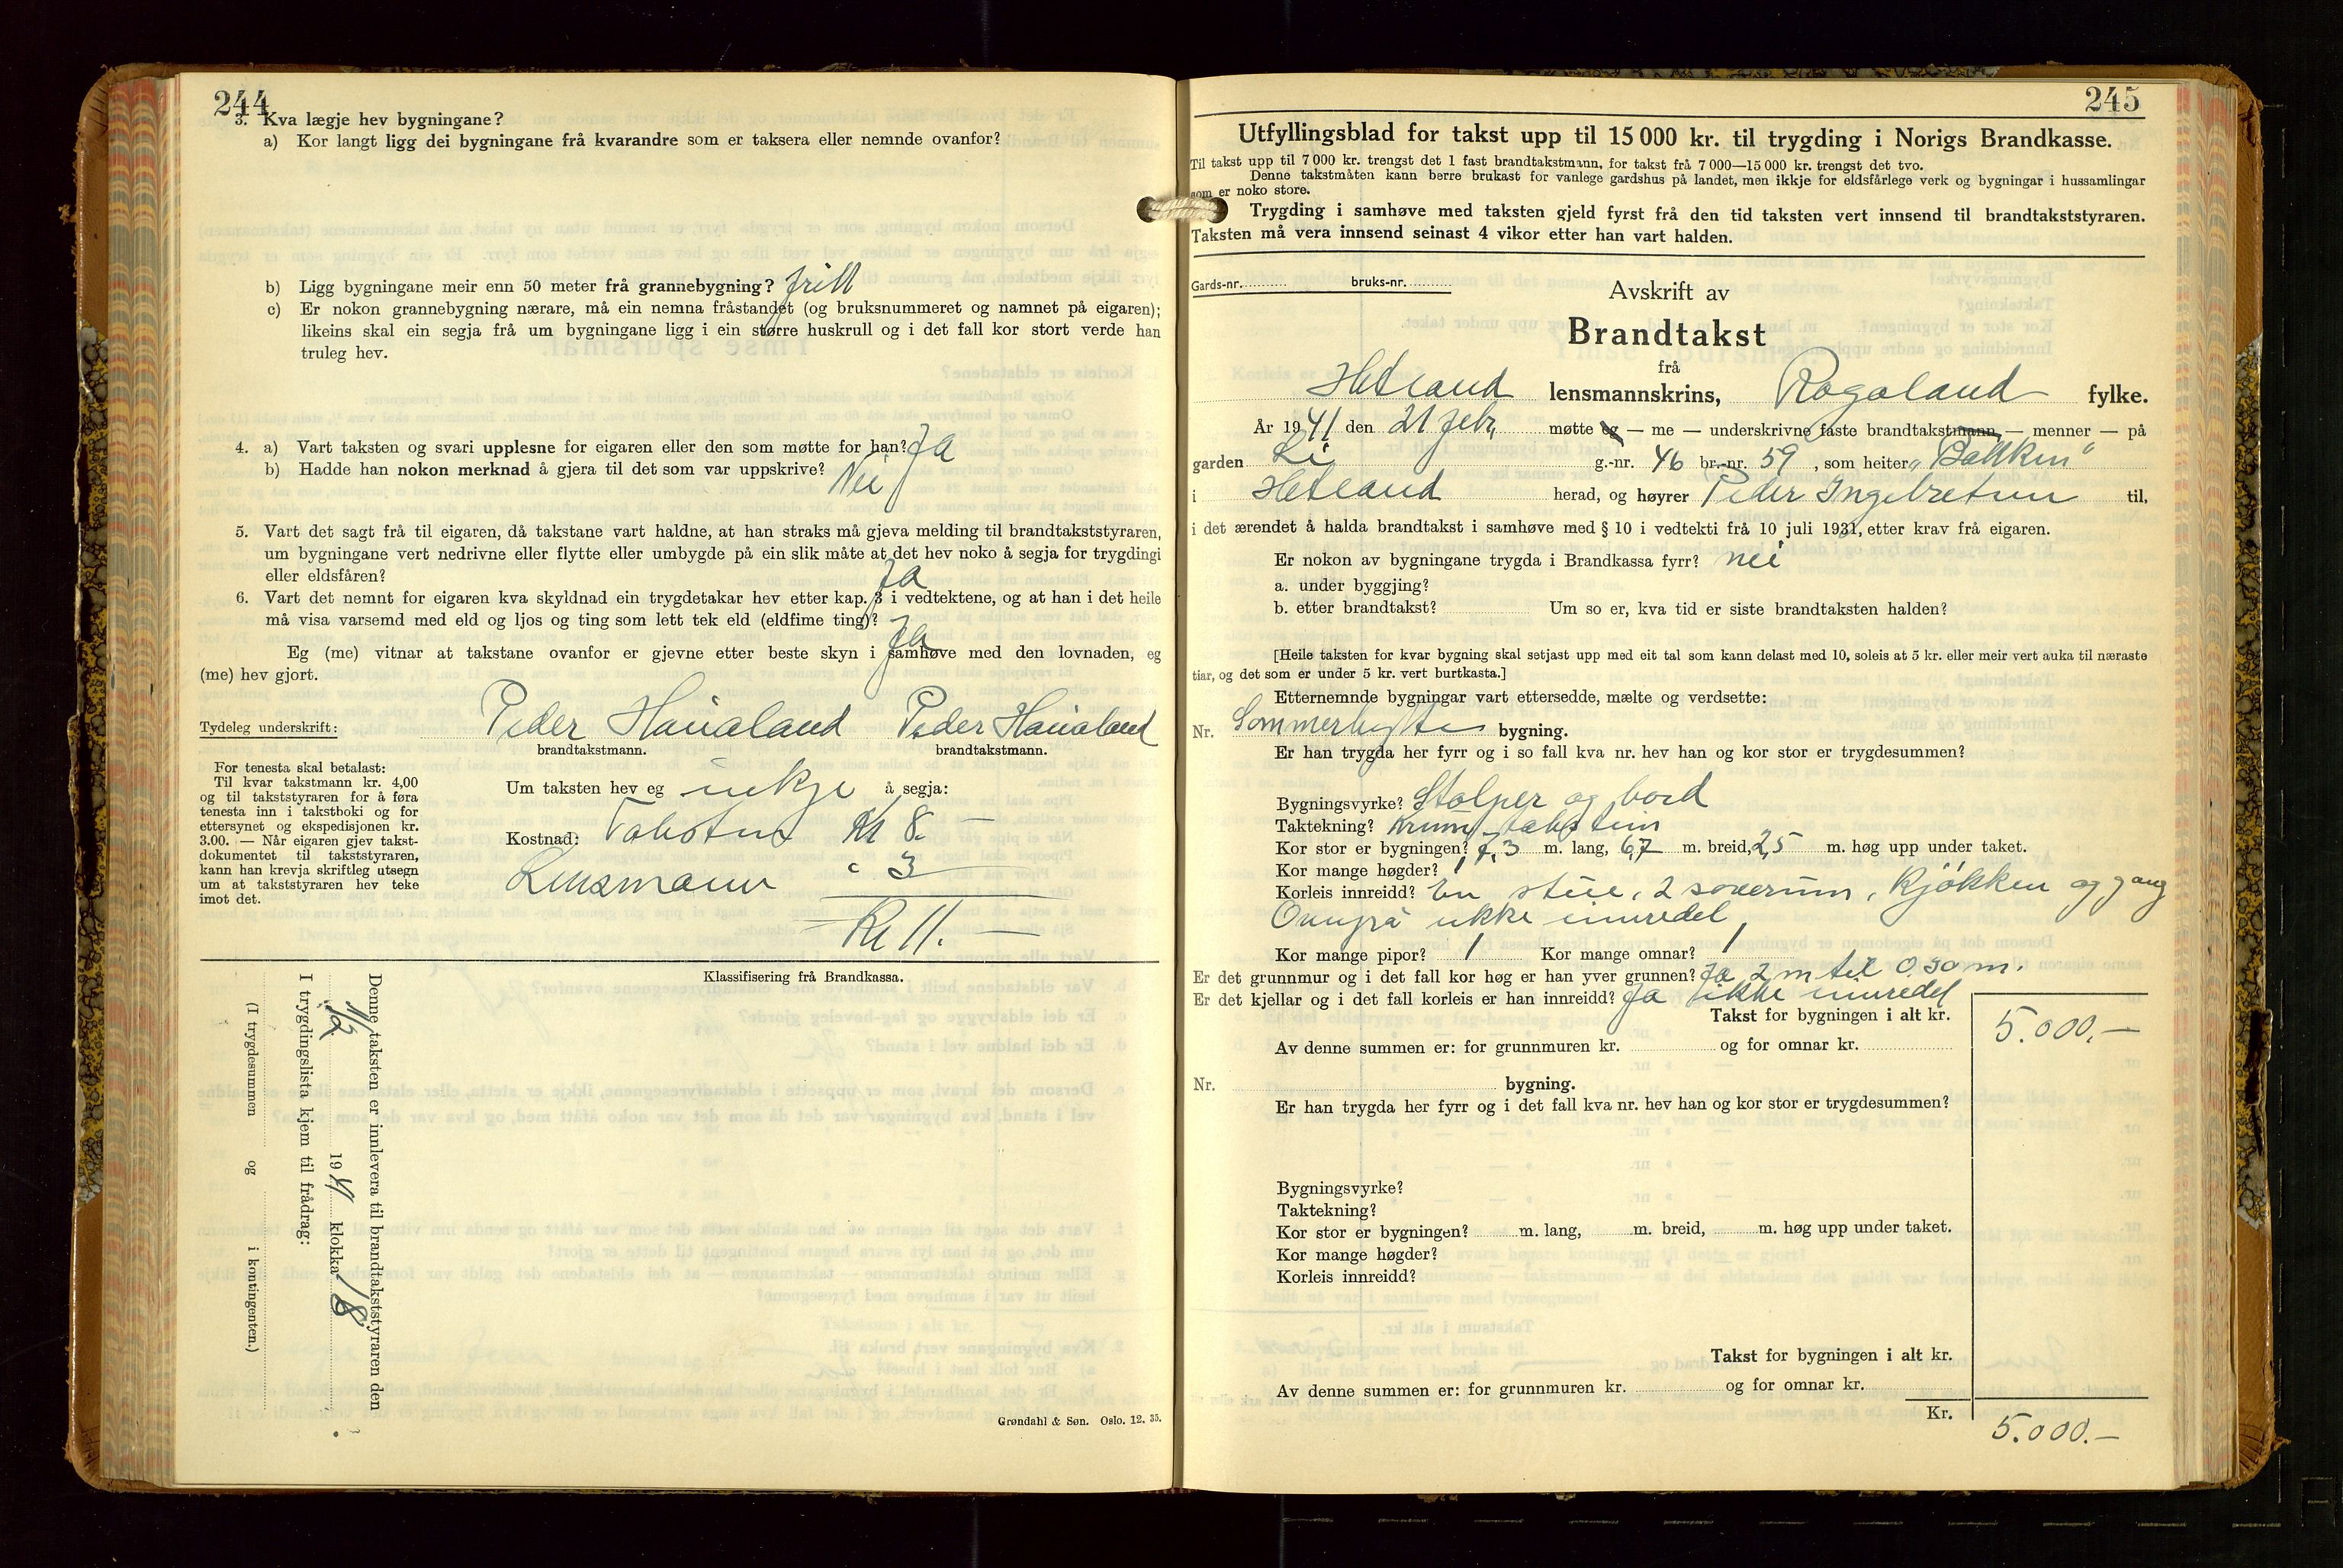 244
3. Kva lægje hev bygningane?
a) Kor langt ligg dei bygningane frå kvarandre som er taksera eller nemnde ovanfor?
b) Ligg bygningane meir enn 50 meter frå grannebygning? fritt
c) Er nokon grannebygning nærare, må ein nemna fråstandet (og bruksnummeret og namnet på eigaren);
likeins skal ein segja frå um bygningane ligg i ein større huskrull og i det fall kor stort verde han
truleg hev.
4. a) Vart taksten og svari upplesne for eigaren eller den som møtte for han? Ja
b) Hadde han nokon merknad å gjera til det som var uppskrive? Nei
5. Vart det sagt frå til eigaren, då takstane vart haldne, at han straks må gjeva melding til brandtakststyraren,
um bygningane vert nedrivne eller flytte eller umbygde på ein slik måte at det hev noko å segja for trygdingi
eller eldsfåren? Ja
6. Vart det nemnt for eigaren kva skyldnad ein trygdetakar hev etter kap. 3 i vedtektene, og at han i det heile
må visa varsemd med eld og ljos og ting som lett tek eld (eldfime ting)? Ja
Eg (me) vitnar at takstane ovanfor er gjevne etter beste skyn i samhøve med den lovnaden, eg
(me) hev gjort.
Tydeleg underskrift: Peder Haualand Peder Haualand
brandtakstmann. brandtakstmann.
For tenesta skal betalast:
Til kvar takstmann kr. 4,00
og til takststyraren for å føra
tenesta inn i takstboki og for
ettersynet og ekspedisjonen kr.
3.00. — Når eigaren gjev takst-
dokumentet til takststyraren,
kann han krevja skriftleg utsegn
um at takststyraren hev teke
imot det.
Um taksten hev eg inkje å segja:
Kostnad: Kr 8. —
Lensmann " 3
Kr 11. —
Klassifisering frå Brandkassa.
Denne taksten er innlevera til brandtakststyraren den
1941 klokka 18
I trygdingslista kjem til frådrag:
(I trygdesummen og i kontingenten.)
Grøndahl & Søn. Oslo. 12. 35.
245
Utfyllingsblad for takst upp til 15 000 kr. til trygding i Norigs Brandkasse.
Til takst upp til 7 000 kr. trengst det 1 fast brandtakstmann, for takst frå 7 000—15 000 kr. trengst det tvo.
Denne takstmåten kann berre brukast for vanlege gardshus på landet, men ikkje for eldsfårlege verk og bygningar i hussamlingar
som er noko store.
Trygding i samhøve med taksten gjeld fyrst frå den tid taksten vert innsend til brandtakststyraren.
Taksten må vera innsend seinast 4 vikor etter han vart halden.
Gards-nr. bruks-nr.
Avskrift av
Brandtakst
frå
Hetland lensmannskrins, Rogaland fylke.
År 1941 den 21 febr, møtte eg — me — underskrivne faste brandtakstmann, — menner — på
garden Li g.-nr. 46 br.-nr. 59, som heiter "Bakken"
i Hetland herad, og høyrer Peder Ingebretsen til,
i det ærendet å halda brandtakst i samhøve med § 10 i vedtekti frå 10 juli 1931, etter krav frå eigaren.
Er nokon av bygningane trygda i Brandkassa fyrr? nei
a. under byggjing?
b. etter brandtakst? Um so er, kva tid er siste brandtaksten halden?
[Heile taksten for kvar bygning skal setjast upp med eit tal som kann delast med 10, soleis at 5 kr. eller meir vert auka til næraste
tiar, og det som er under 5 kr. vert burtkasta.]
Etternemnde bygningar vart ettersedde, mælte og verdsette:
Nr. Sommerhytte bygning.
Er han trygda her fyrr og i so fall kva nr. hev han og kor stor er trygdesummen?
Bygningsvyrke? Stolper og bord
Taktekning? Krum takstein
Kor stor er bygningen? 7,3 m. lang, 6,7 m. breid, 2,5 m. høg upp under taket.
Kor mange høgder? 1
Korleis innreidd? En stue, 2 soverum, kjøkken og gang
Ovnpå ikke innredet
Kor mange pipor? 1 Kor mange omnar? 1
Er det grunnmur og i det fall kor høg er han yver grunnen? Ja 2 m til 0.50 m.
Er det kjellar og i det fall korleis er han innreidd? Ja ikke innredet
Takst for bygningen i alt kr. 5.000.—
Av denne summen er: for grunnmuren kr. og for omnar kr.
Nr. bygning.
Er han trygda her fyrr og i det fall kva nr. hev han og kor stor er trygdesummen?
Bygningsvyrke?
Taktekning?
Kor stor er bygningen? m. lang, m. breid, m. høg upp under taket.
Kor mange høgder?
Korleis innreidd?
Takst for bygningen i alt kr.
Av denne summen er: for grunnmuren kr. og for omnar kr.
Kr. 5.000.—